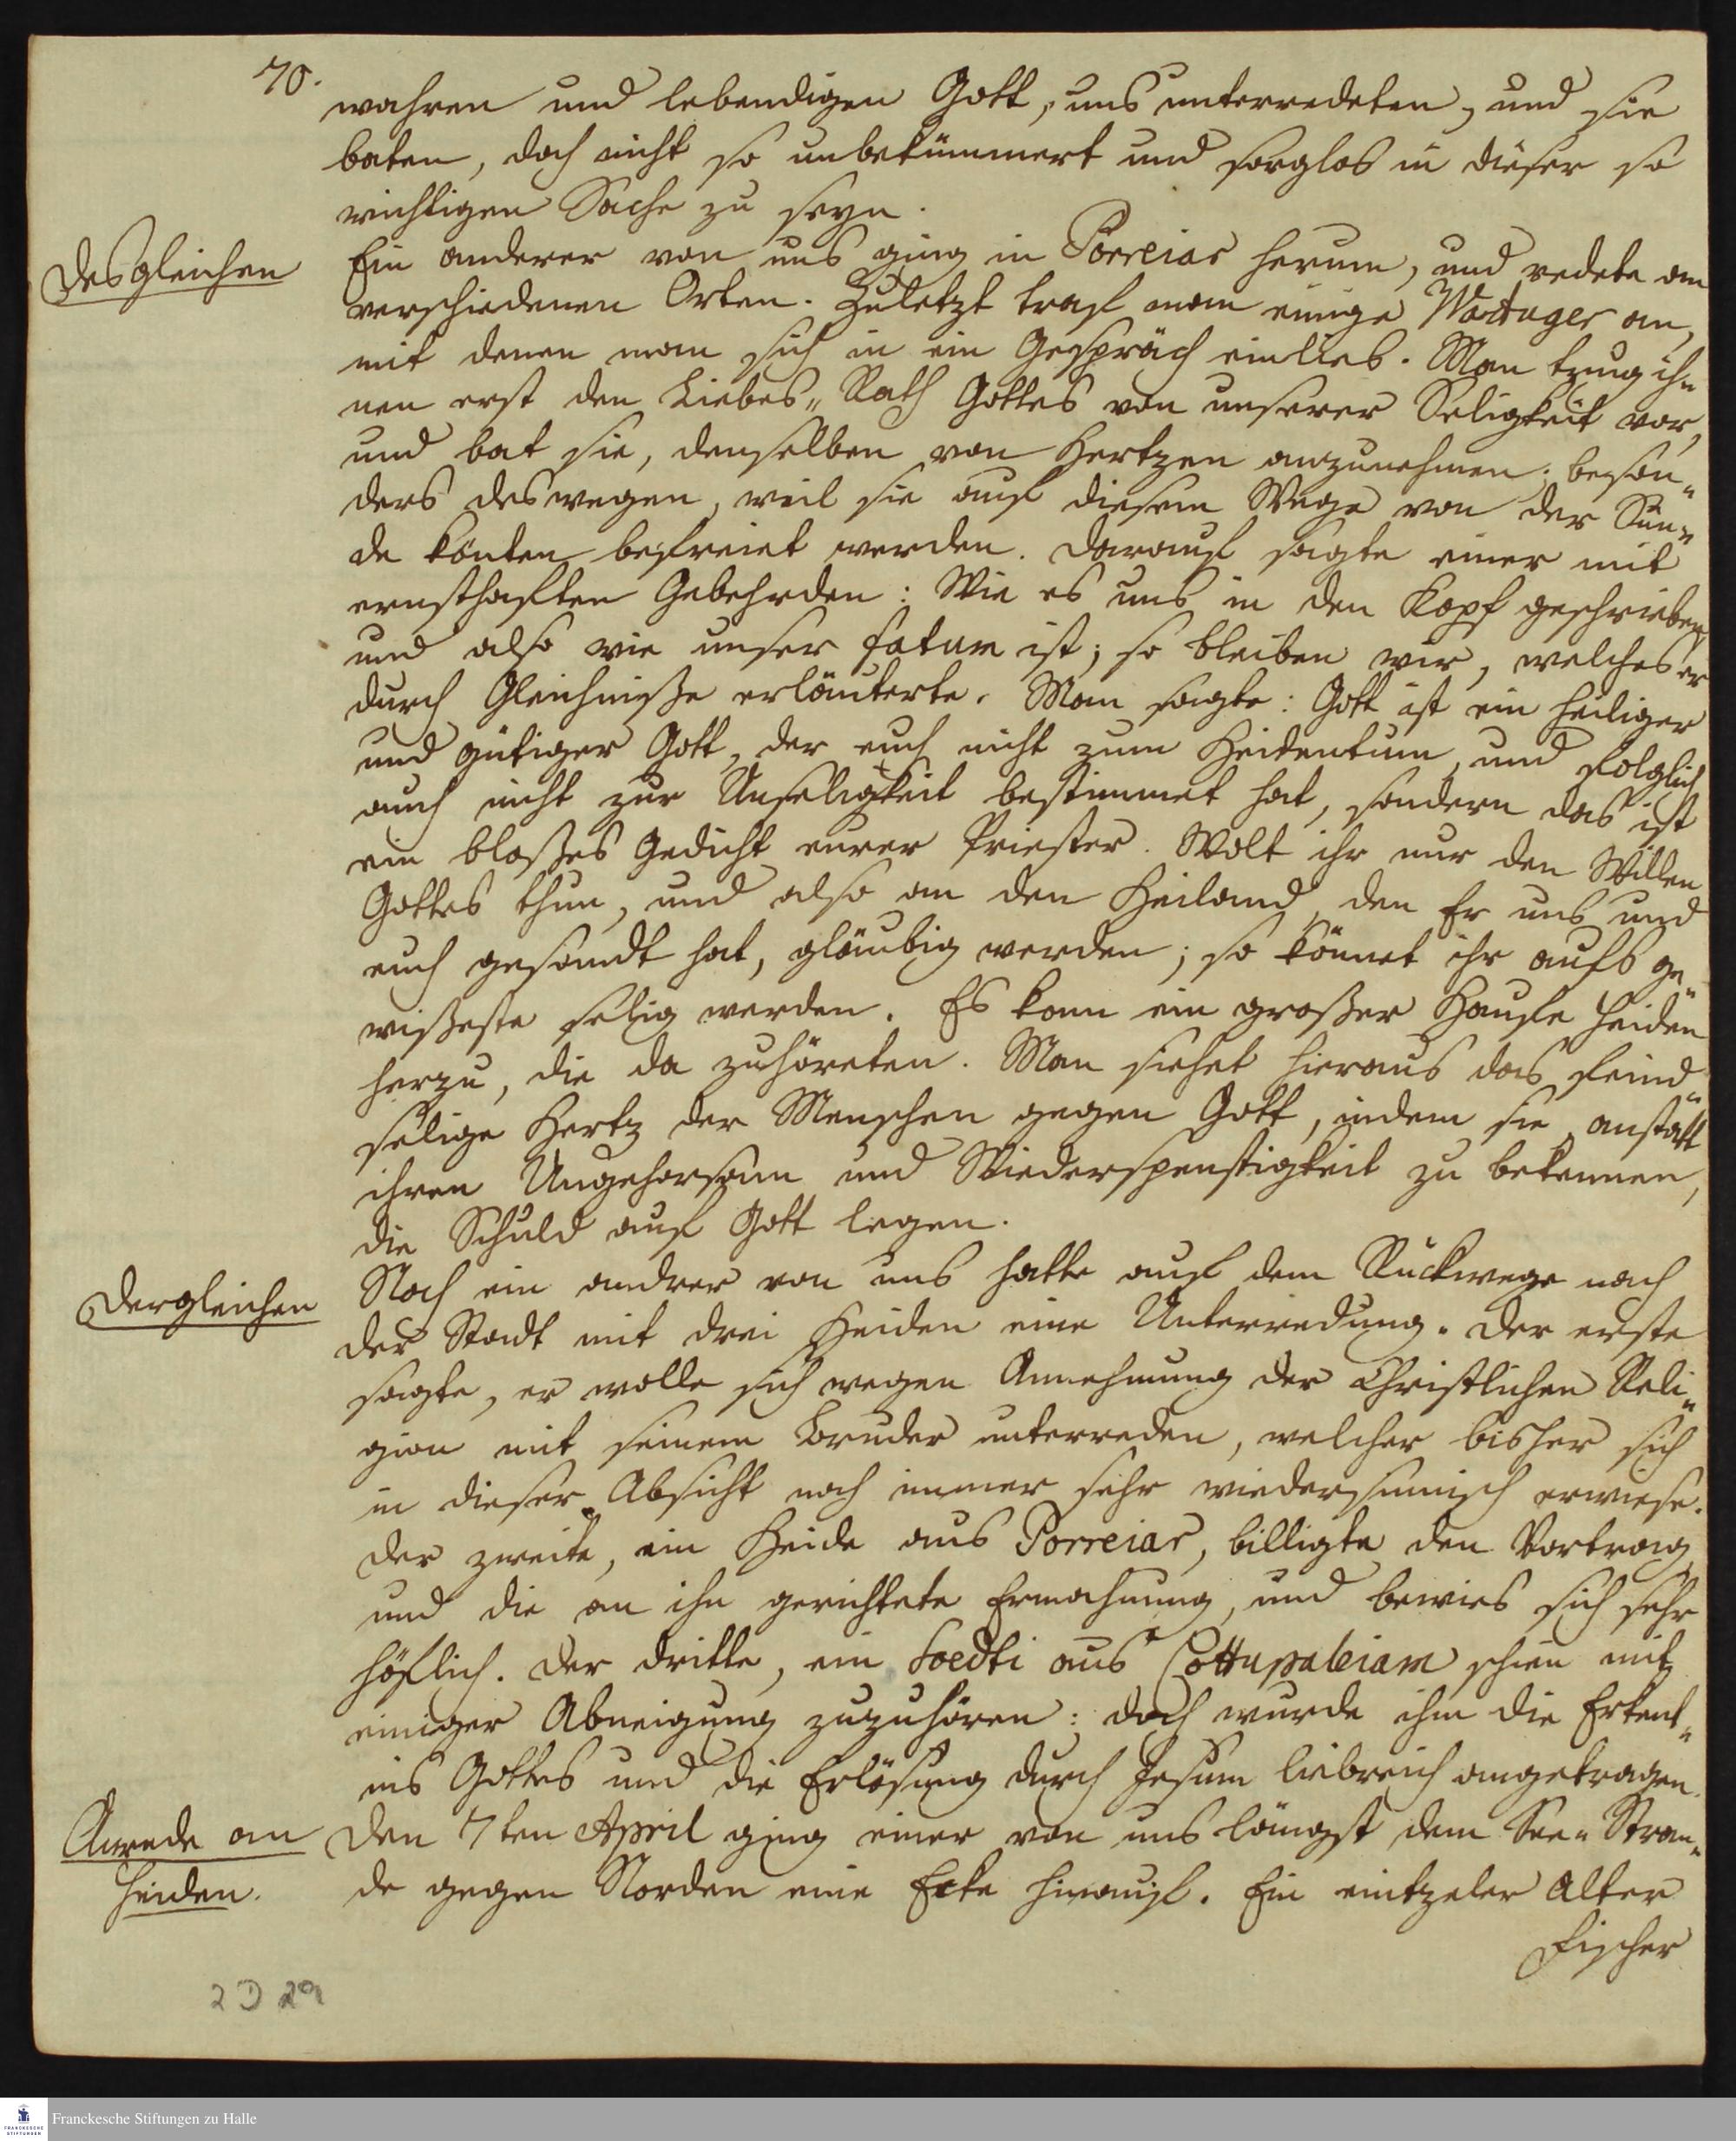 70.
wahren und lebendigen Gott, uns unterredeten, und sie
baten, doch nicht so unbekümmert und sorglos in dieser so
wichtigen Sache zu seyn.
Desgleichen
Ein anderer von uns ging in Porreiar herum, und redete an
verschiedenen Orten. Zuletzt traf man einige Wartuger an,
mit denen man sich in ein Gespräch einlies. Man trug ih„
nen erst den Liebes„Rath Gottes von unserer Seligkeit vor,
und bat sie, denselben von Hertzen anzunehmen; beson„
ders deswegen, weil sie auf diesem Wege von der Sün„
de könten befreiet werden. Darauf sagte einer mit
ernsthaften Gebehrden: Wie es uns in den Kopf geschrieben,
und also wie unser fatum ist; so bleiben wir, welches er
durch Gleichniße erläuterte. Man sagte: Gott ist ein heiliger
und gütiger Gott, der euch nicht zum Heidentum, und folglich
auch nicht zur Unseligkeit bestimmet hat, sondern das ist
ein bloßes Gedicht eurer Priester. Wolt ihr nur den Willen
Gottes thun, und also an den Heiland, den Er uns und
euch gesandt hat, gläubig werden; so könnet ihr aufs ge„
wißeste selig werden. Es kam ein großer Haufe Heiden
herzu, die da zuhöreten. Man siehet hieraus das feind„
selige Hertz der Menschen gegen Gott, indem sie, anstatt
ihren Ungehorsam und Wiederspenstigkeit zu bekennen,
die Schuld auf Gott legen.
Dergleichen
Noch ein andrer von uns hatte auf dem Rückwege nach
der Stadt mit drei Heiden eine Unterredung. Der erste
sagte, er wolle sich wegen Annehmung der Christlichen Reli„
gion mit seinem Bruder unterreden, welcher bisher sich
in dieser Absicht noch immer sehr wiedersinnisch erwiese.
Der zweite, ein Heide aus Porreiar, billigte den Vortrag
und die an ihn gerichtete Ermahnung, und bewies sich sehr
höflich. Der dritte, ein Soedti aus Cottupaleiam schien mit
einiger Abneigung zuzuhören: doch wurde ihm die Erkent„
nis Gottes und die Erlösung durch Jesum liebreich angetragen.
Anrede an
Heiden.
Den 7ten April ging einer von uns längst dem See„Stran„
de gegen Norden eine Ecke hinauf. Ein eintzeler Alter
Fischer
2 D 29
Franckesche Stiftungen zu Halle